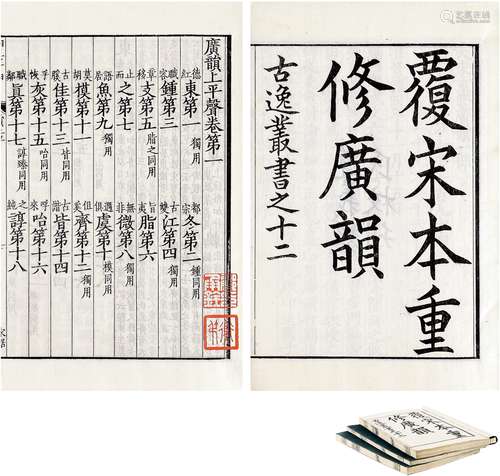 覆宋本重
修廣韻
古逸叢書之十二
廣韻上平聲卷第一
德紅東第一獨用 都宗冬第二鍾同用
職容鍾第三獨用 古雙江第四獨用
章移支第五脂之同用 旨夷脂第六
止而之第七 無非微第八獨用
語居魚第九獨用 遇俱虞第十模同用
莫胡模第十一 徂奚齊第十二獨用
古膎佳第十三皆同用 古諧皆第十四
呼恢灰第十五咍同用 呼來咍第十六
職鄰眞第十七諄臻同用 之純諄第十八